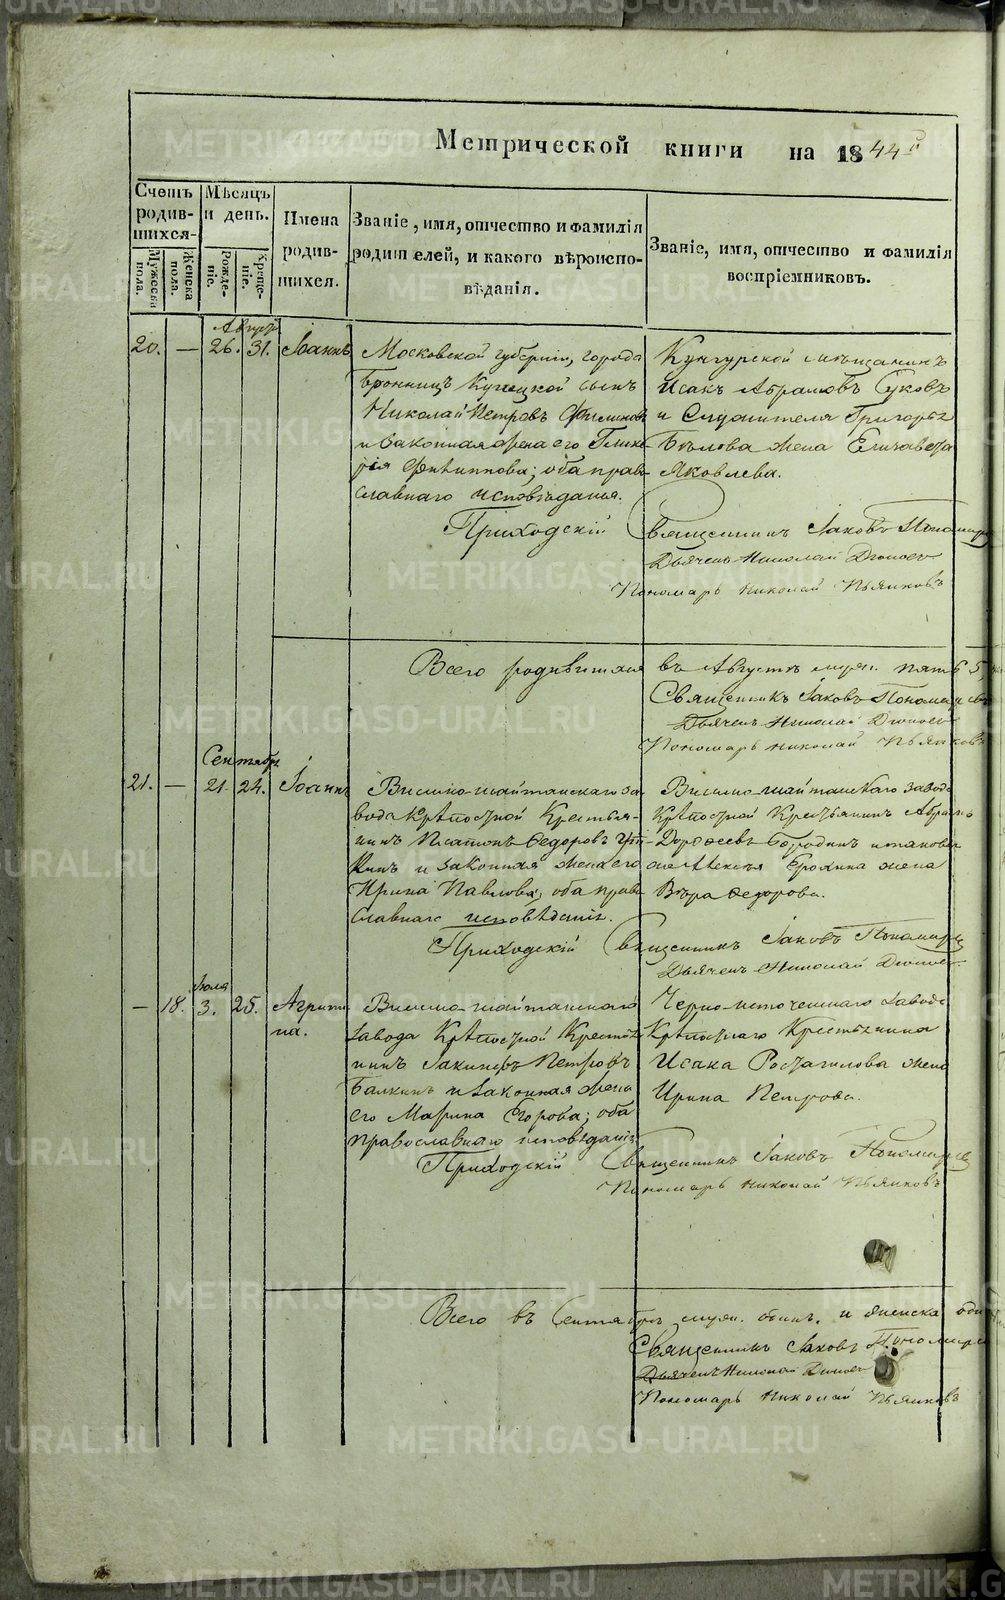 Метрической книги на 1844й
Счетъ родив- шихся
Мѣсяцъ и день.
Имена родив- шихся.
Званіе, имя, отчество и фамилія родителей, и какого вѣроиспо- вѣданія.
Званіе, имя, отчество и фамилія воспріемниковъ.
Мужеска пола.
Женска пола.
Рожде- ніе.
Креще- ніе.
20. — 26. 31. Іоаннъ
Московской губерніи, города
Бронницъ Купецкой сынъ
Николай Петровъ
и законная жена его
Филиппова; оба право-
славнаго исповѣданія.
Кунгурской мещанинъ
Исакъ Абрамовъ Суковъ
и Служителя Григорья
Бѣлова жена Елизавета
Яковлева.
Приходскій Священникъ Іаковъ Пономаревъ
Дьячекъ Николай
Пономарь Николай Пьянковъ
Всего родившихся въ Августѣ муж. пять 5,
Священникъ Іаковъ Пономаревъ
Дьячекъ Николай
Пономарь Николай Пьянковъ
Сентябр
21. — 21. 24. Іоаннъ
Висимо-шайтанскаго за-
вода Крѣпостной Крестья-
нинъ Платонъ Ѳедоровъ
и законная жена его
Ирина Павлова; оба право-
славнаго исповѣданія.
Висимо-шайтанскаго завода
Крѣпостной Крестьянинъ Абрамъ
Дороѳеевъ Бородинъ и таковаго
же Алексѣя Ерохина жена
Вѣра Ѳедорова.
Приходскій Священникъ Іаковъ Пономаревъ
Дьячекъ Николай
Іюля
— 18. 3. 25. Агрипи-
на.
Висимо-шайтанскаго
завода Крѣпостной Крестья-
нинъ Іакинфъ Петровъ
Балкинъ и законная жена
его Марина Егорова; оба
православнаго исповѣданія
Черно-источенскаго завода
Крѣпостнаго Крестьянина
Исака жена
Ирина Петрова.
Приходскій Священникъ Іаковъ Пономаревъ
Пономарь Николай Пьянковъ
Всего въ Сентябрѣ муж. одинъ. и женска
Священникъ Іаковъ Пономаревъ
Дьячекъ Николай
Пономарь Николай Пьянковъ
METRIKI.GASO-URAL.RU